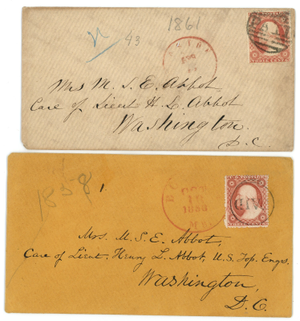 1861
93
Mrs M. S. E. Abbot
Care of Lieut H. L. Abbot
Washington
D.C.
1858
OCT
PAID
Mrs. M. S. E. Abbot,
Care of Lieut. Henry L. Abbot, U.S. Top. Engrs.
Washington,
D.C.